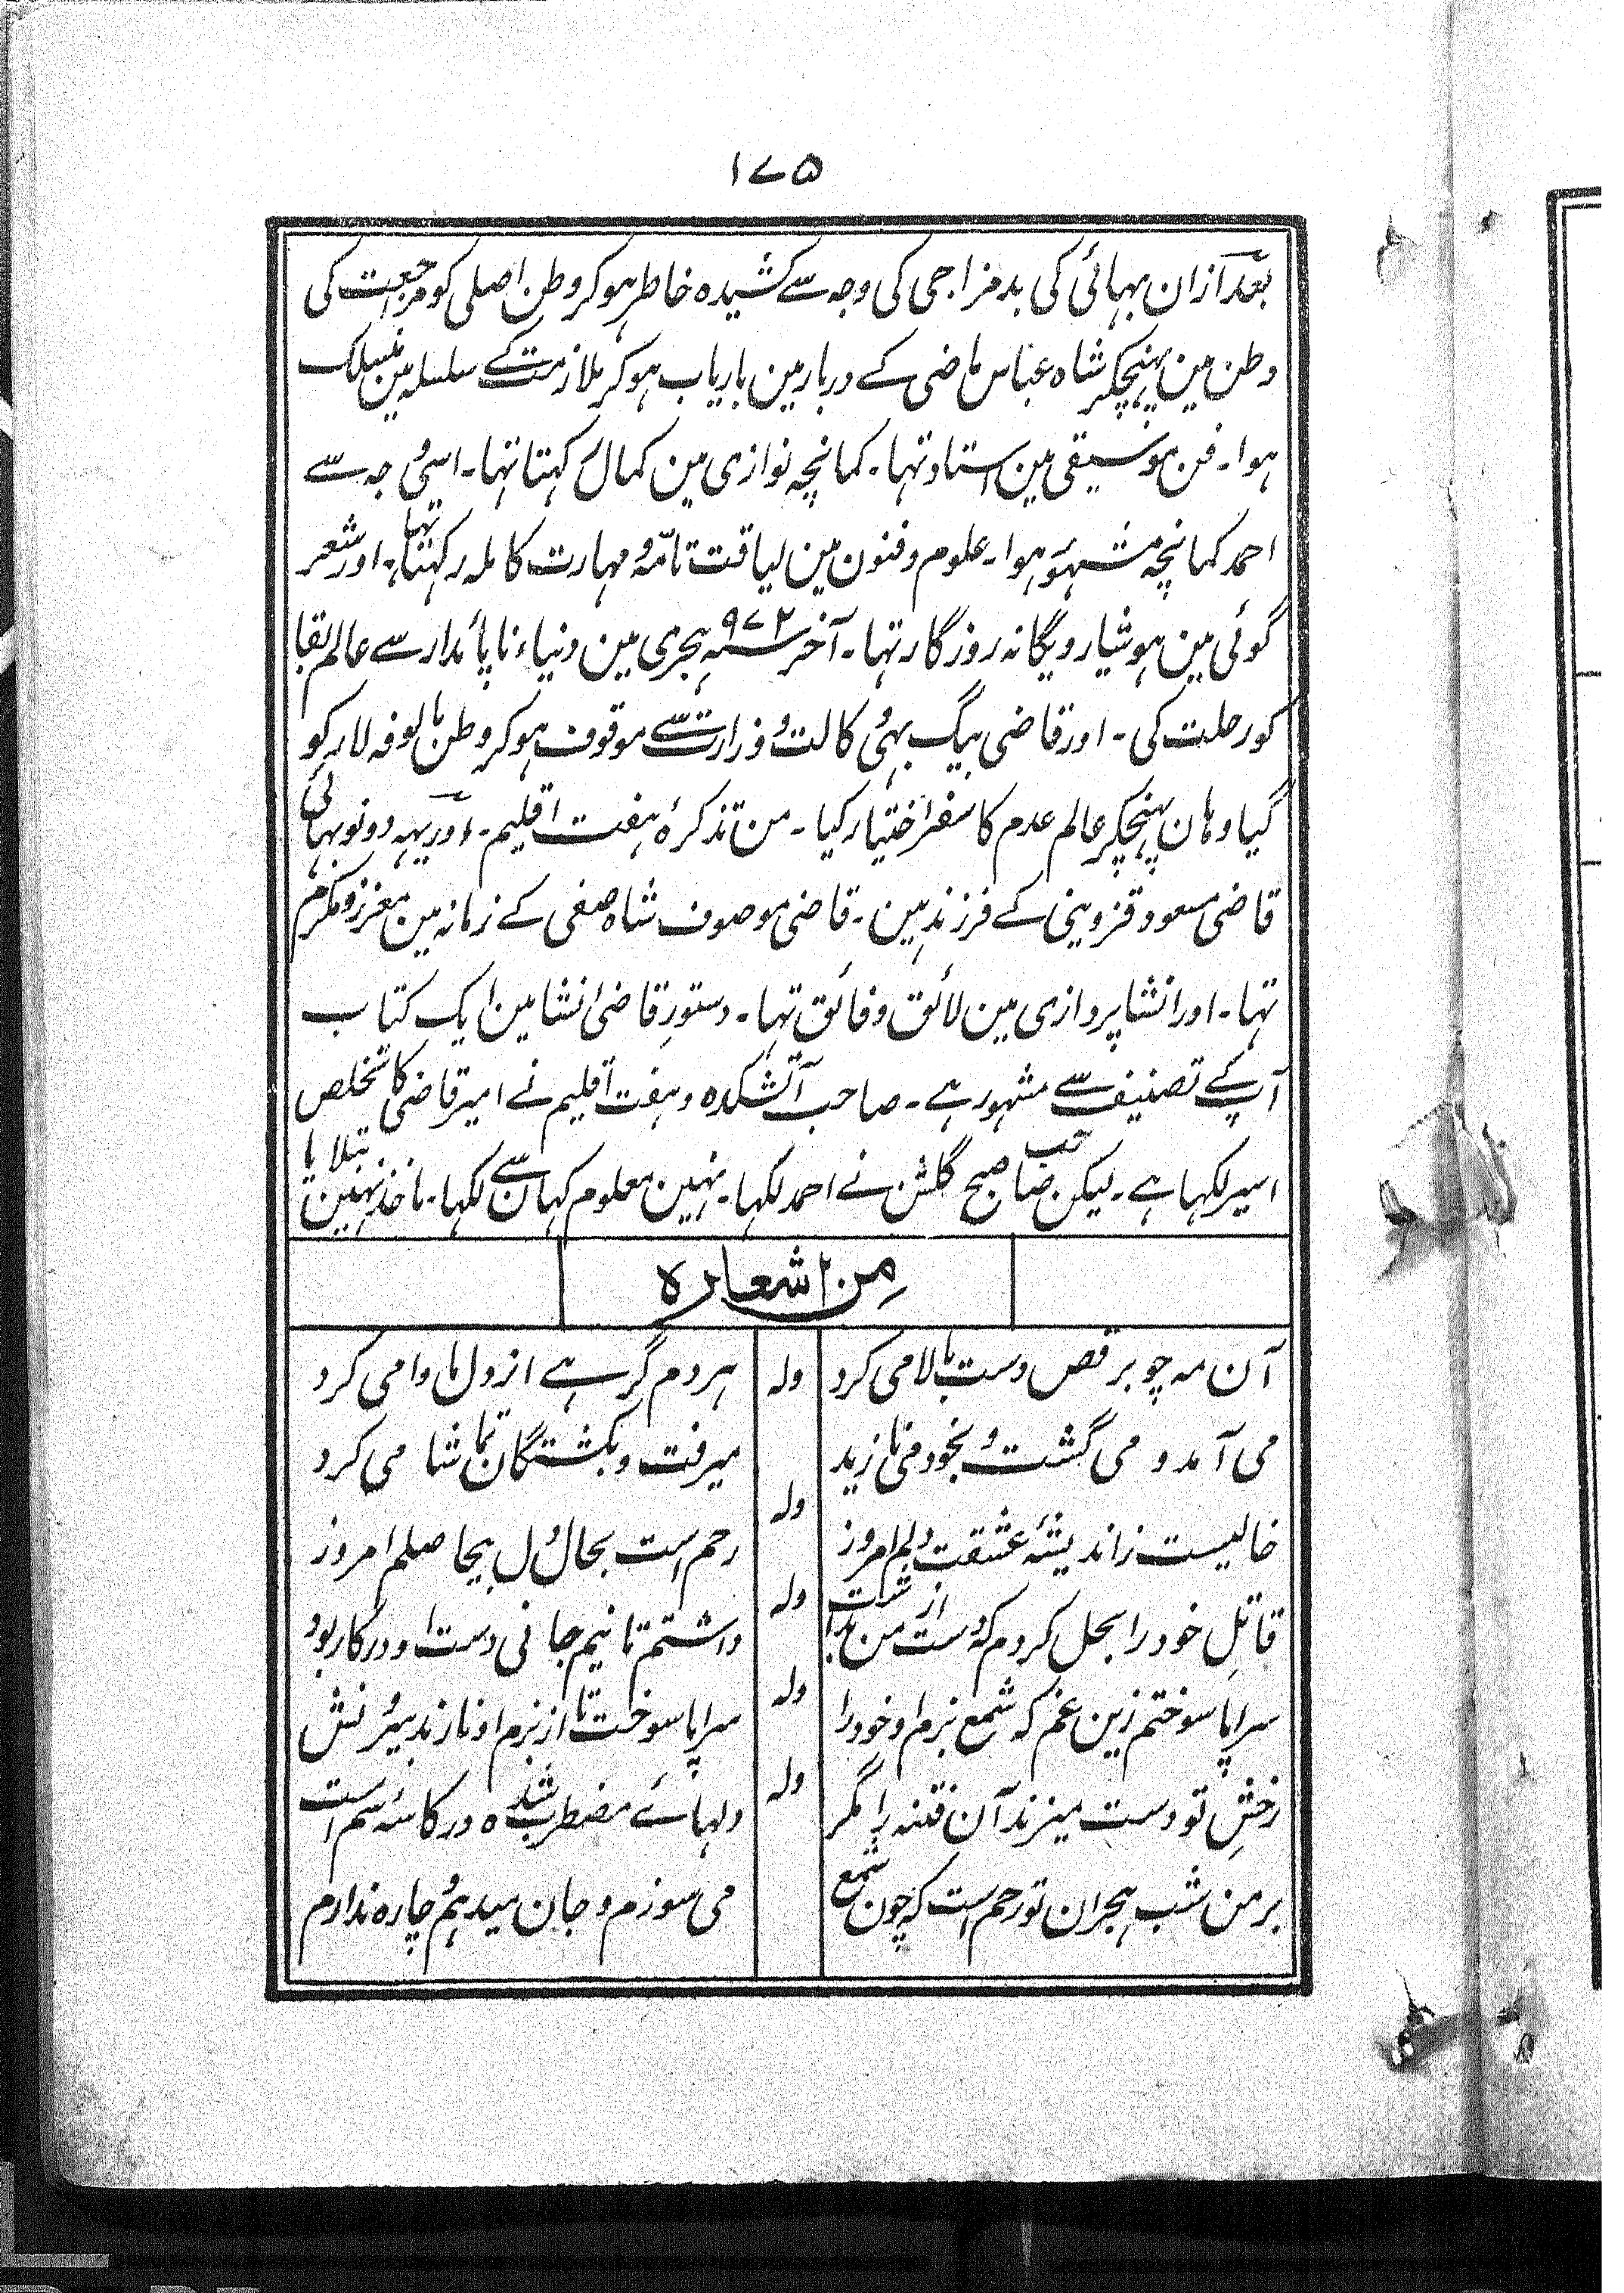 ۱۷۵
بعد آزان بہائی کی بدمزاجی کی وجہ سے کشیدہ خاطر ہوکر وطن اصلی کو مرجعت کی
وطن مین پہنچکر شاہ عباس ماضی کے دربار مین باریاب ہوکر ملازمت کے سلسلہ مین منسلک
ہوا۔ فن موسیقی مین استاد تہا۔ کمانچہ نوازی مین کمال رکہتا تہا۔ اسی وجہ سے
احمد کمانچہ مشہور ہوا۔ علوم و فنون مین لیاقت تامّہ و مہارت کاملہ رکہتا تہا۔ اور شعر
گوئی مین ہوشیار و یگانہ روزگار تہا۔ آخر سنہ ۹۷۲ ہجری مین دنیاء ناپائدار سے عالم بقا
کو رحلت کی۔ اور قاضی بیگ بہی وکالت و وزارت سے موقوف ہوکر وطن مالوفہ لار کو
گیا وہان پہنچکر عالم عدم کا سفر اختیار کیا۔ من تذکرۂ ہفت اقلیم۔ اور یہہ دونو بہائی
قاضی مسعود قزوینی کے فرزند ہین۔ قاضی موصوف شاہ صفی کے زمانہ مین معزز و مکرم
تہا۔ اور انشاپردازی مین لائق و فائق تہا۔ دستور قاضی انشا مین ایک کتاب
آپکے تصنیف سے مشہور ہے۔ صاحب آتشکدہ و ہفت اقلیم نے امیر قاضی کا تخلص
اسیر لکہا ہے۔ لیکن صاحب صبح گلشن نے احمد لکہا۔ نہین معلوم کہان سے لکہا۔ ماخذ نہین بتلایا
مِن اشعارہ
آن مہ چو برقص دست بالا می کرد ولہ ہردم گرہے از دل ما وا می کرد
می آمد و می گشت و بخود می نازید میرفت و بکشتگان تماشا می کرد
خالیست ز اندیشۂ عشقت دلم امروز ولہ رحم است بحال دل بیحاصلم امروز
قاتلِ خود را بحل کردم کہ دست من ولہ داشتم تا نیم جانی دست او درکار بود
سراپا سوختم زین غم کہ شمع بزم او خود را ولہ سراپا سوخت تا از بزم او نارند بیرونش
رخشِ تو دست میزند آن فتنہ را مگر ولہ دلہائے مضطرب شدہ در کاسۂ سم است
بر من شب ہجران تو رحم است کہ چون شمع می سوزم و جان میدہم و چارہ ندارم